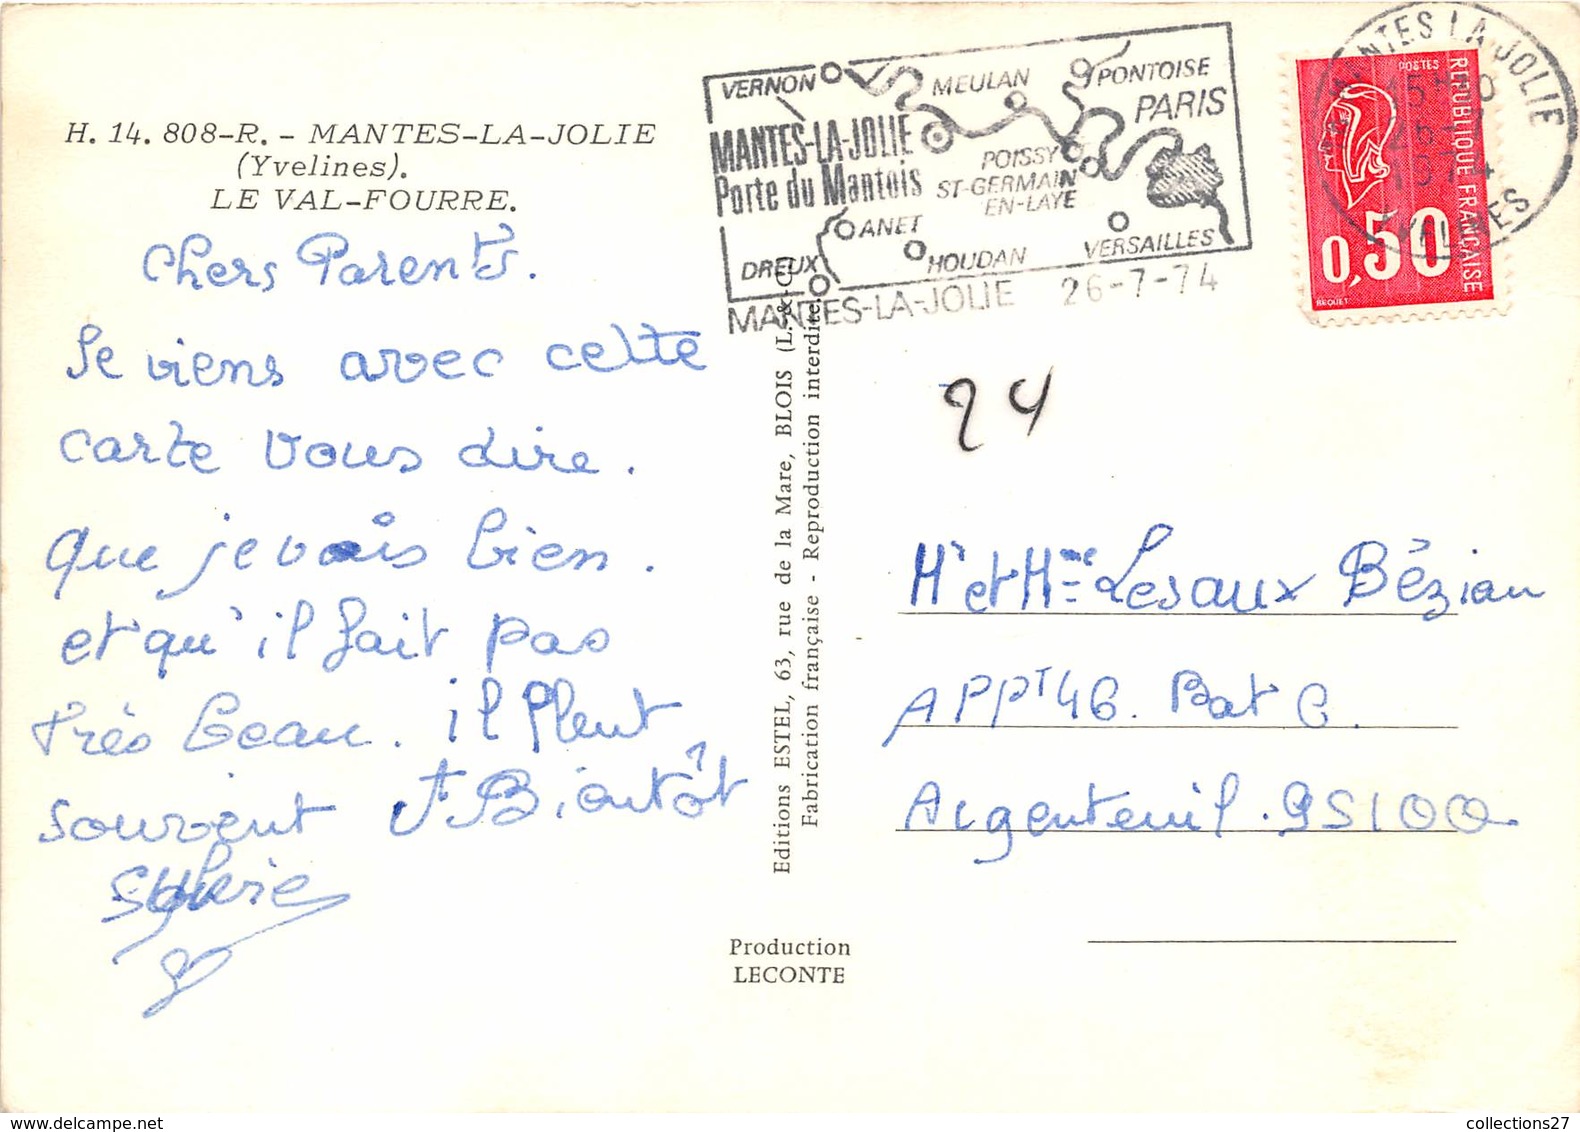 H. 14. 808-R. - MANTES-LA-JOLIE
(Yvelines).
LE VAL-FOURRE.
Chers Parents.
Je viens avec cette
carte vous dire.
que je vais bien.
et qu'il fait pas
très beau. il pleut
souvent A Bientôt
Sylvie
VERNON
MEULAN
PONTOISE
PARIS
MANTES-LA-JOLIE
Porte du Mantois
POISSY
ST-GERMAIN
EN-LAYE
ANET
HOUDAN
VERSAILLES
DREUX
MANTES-LA-JOLIE 26-7-74
MANTES LA JOLIE
YVELINES
POSTES
REPUBLIQUE FRANÇAISE
0,50
BEQUET
24
Editions ESTEL, 63, rue de la Mare, BLOIS (L.-&-C.)
Fabrication française - Reproduction interdite.
Mr et Mme Lesaux Bézian
APPT 46. Bat C.
Argenteuil. 95100
Production
LECONTE
collections27